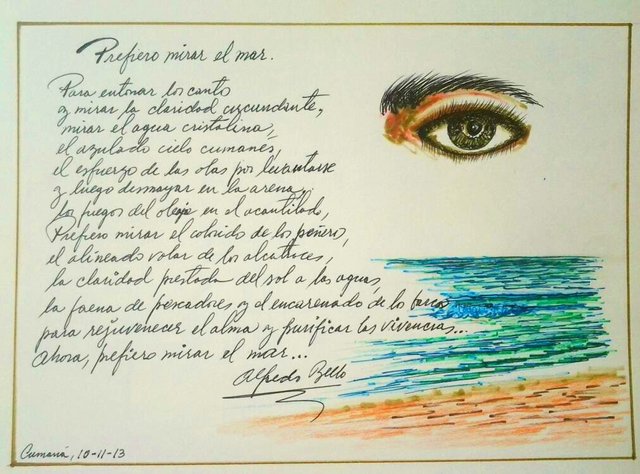 Prefiero mirar el mar.
Para entonar los canto
y mirar la claridad circundante,
mirar el agua cristalina,
el azulado cielo cumanes,
el esfuerzo de las olas por levantarse
y luego desmayar en la arena,
los juegos del oleaje en el acantilado,
Prefiero mirar el colorido de los peñero,
el alineado volar de los alcatrices,
la claridad prestada del sol a las aguas,
la faena de pescadores y el encarenado de lo barco
para rejuvenecer el alma y purificar las vivencias...
Ahora, prefiero mirar el mar...
Alfredo Bello
Cumaná, 10-11-13